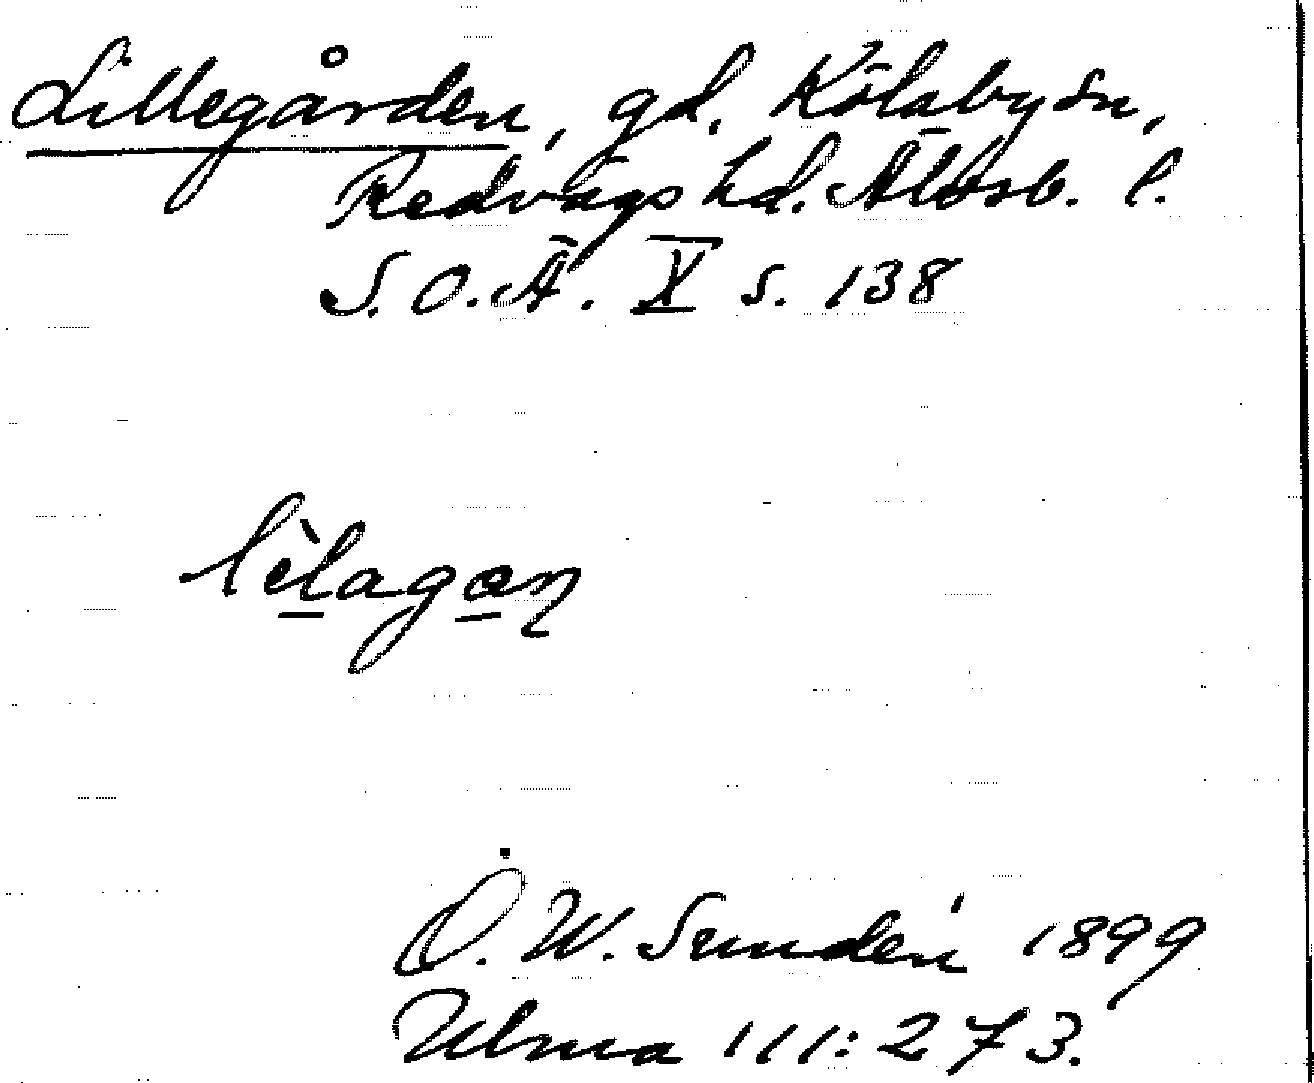 Lillegården, gd. Kölaby sn,
Redvägs hd. Älvsb. l.
S.O.Ä. X s. 138
lìlagan
O. W. Sundén 1899
Ulma 111:273.